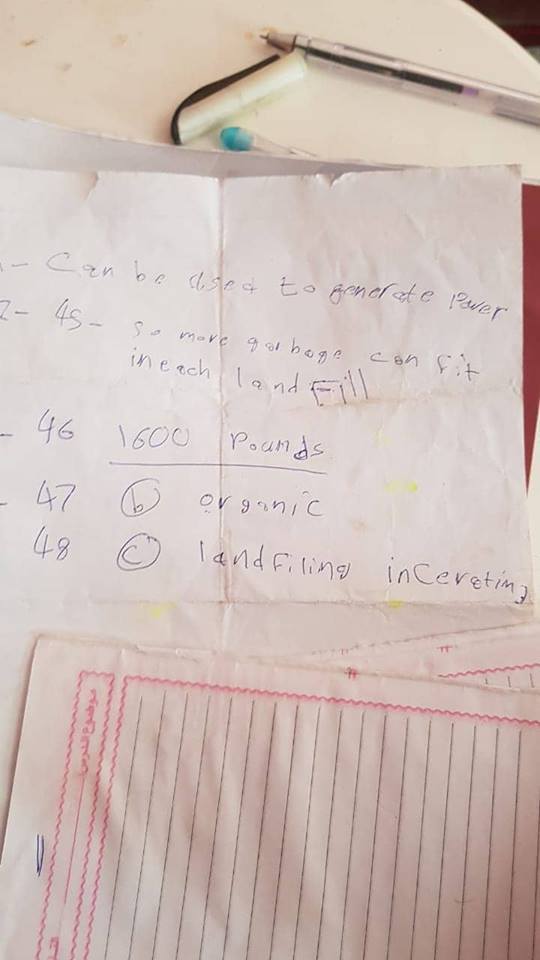 - Can be used to generate Power
2- 45- So more garbage can fit
in each land Fill
- 46 1600 Pounds
- 47 b organic
48 c landfiling inCerating
موضوع الدرس